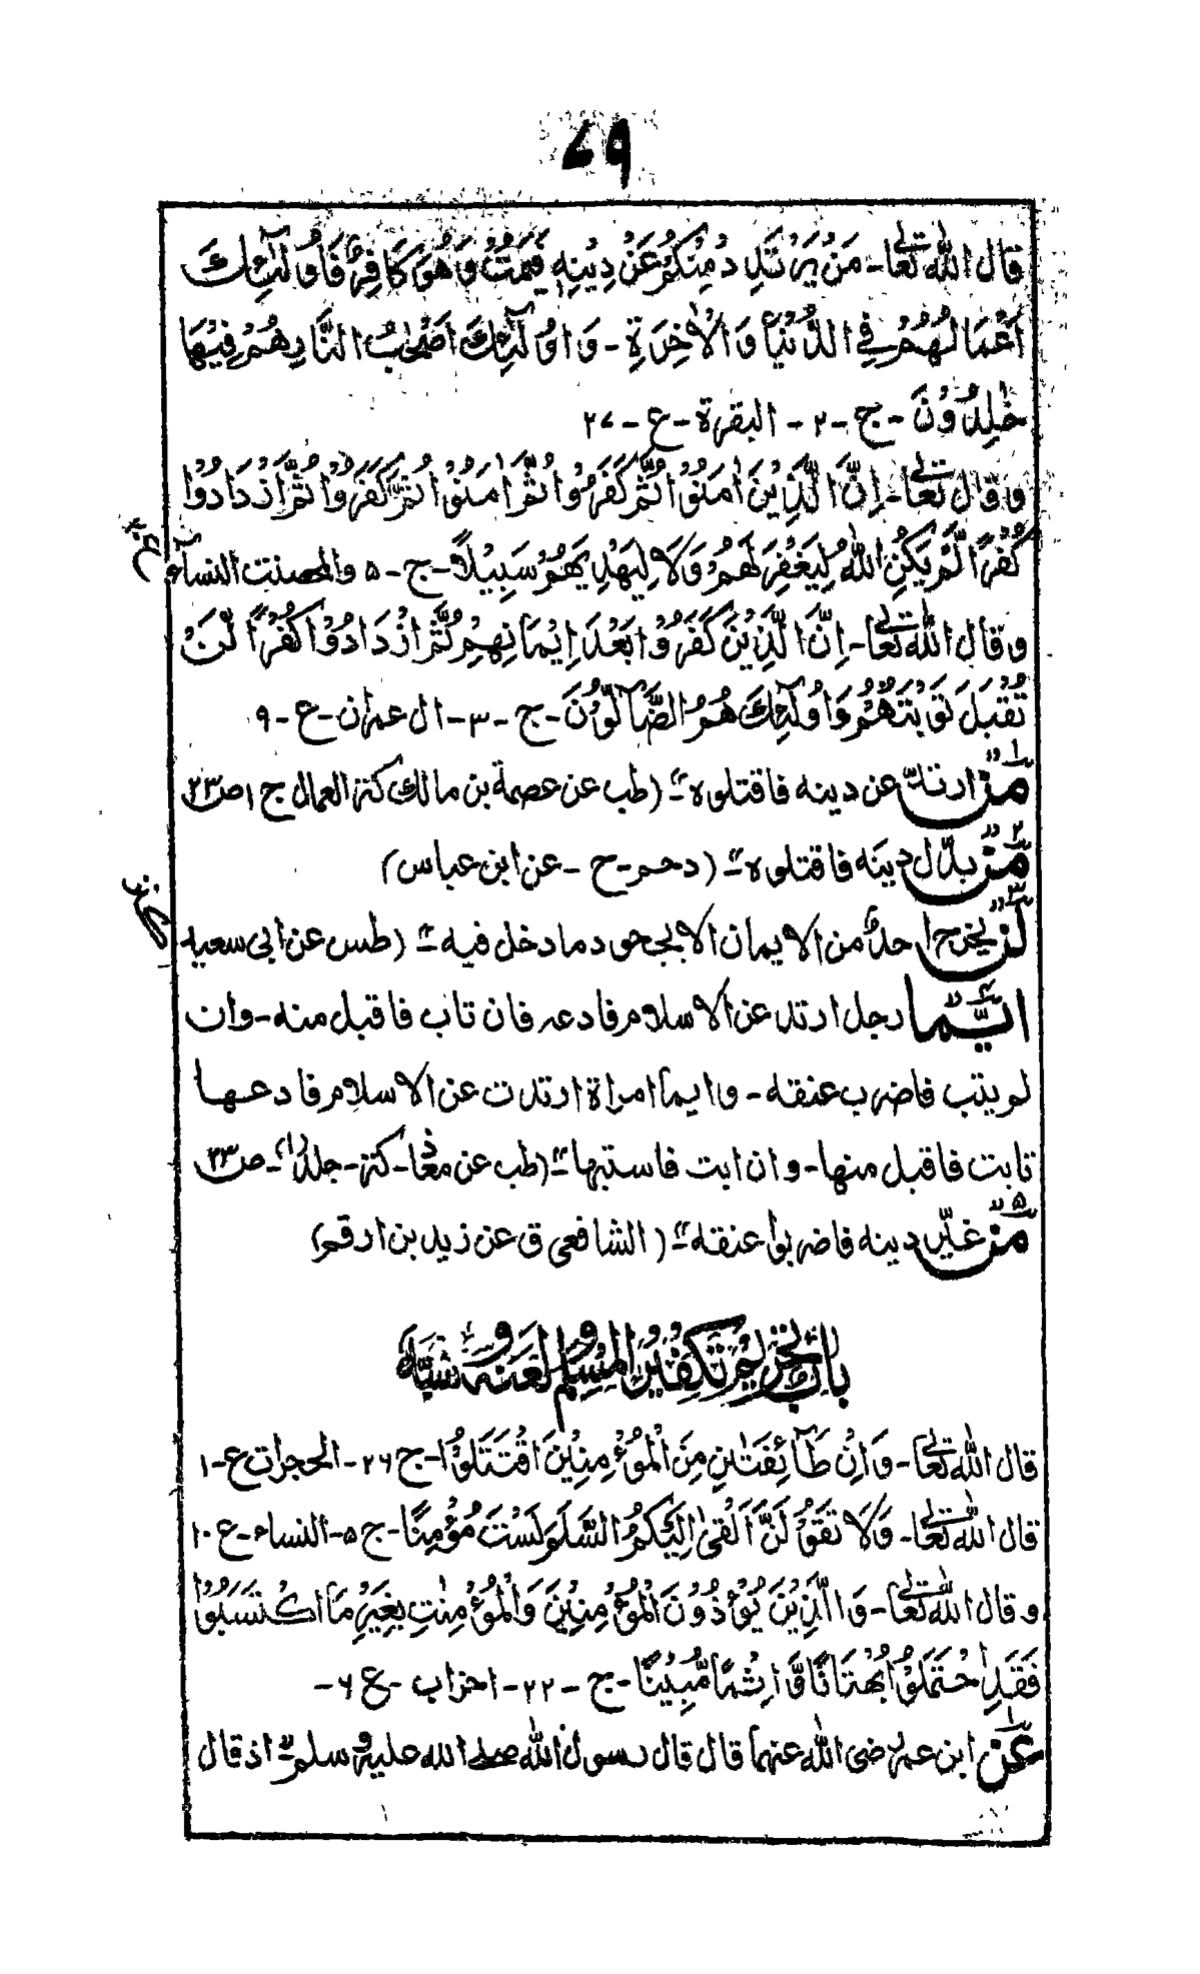 ۷۹
قال الله تعالى۔ مَنْ يَرْتَدِدْ مِنْكُمْ عَنْ دِيْنِهٖ فَيَمُتْ وَهُوَ كَافِرٌ فَاُولٰٓئِكَ
اَعْمَالُهُمْ فِي الدُّنْيَا وَالْاٰخِرَةِ۔ وَاُولٰٓئِكَ اَصْحٰبُ النَّارِ هُمْ فِيْهَا
خٰلِدُوْنَ۔ ج۔ ۲۔ البقرة۔ ع۔ ۲۷
وقال تعالى۔ اِنَّ الَّذِيْنَ اٰمَنُوْا ثُمَّ كَفَرُوْا ثُمَّ اٰمَنُوْا ثُمَّ كَفَرُوْا ثُمَّ ازْدَادُوْا
كُفْرًا لَّمْ يَكُنِ اللهُ لِيَغْفِرَ لَهُمْ وَلَا لِيَهْدِيَهُمْ سَبِيْلًا۔ ج۔ ۵ والمحصنٰت النساء
ع ۲۰
وقال الله تعالى۔ اِنَّ الَّذِيْنَ كَفَرُوْا بَعْدَ اِيْمَانِهِمْ ثُمَّ ازْدَادُوْا كُفْرًا لَّنْ
تُقْبَلَ تَوْبَتُهُمْ وَاُولٰٓئِكَ هُمُ الضَّآلُّوْنَ۔ ج۔ ۳۔ ال عمران۔ ع۔ ۹
۱ "من ارتد عن دينه فاقتلوه" (طب عن عصمة بن مالك كنز العمال ج ۱ ص ۲۳
۲ "من بدّل دينَه فاقتلوه" (د حم۔ ح۔ عن ابن عباس)
۳ "لن يخرج احدٌ من الايمان الا بجحود ما دخل فيه" (طس عن ابى سعيد
كنز
۴ "ايّما رجل ارتد عن الاسلام فادعه فان تاب فاقبل منه۔ وان
لم يتب فاضرب عنقه۔ وايما امراة ارتدت عن الاسلام فادعها
تابت فاقبل منها۔ وان ابت فاستبها" (طب عن معاذ۔ كنز۔ جلد(۱)۔ ص ۲۳
۵ "من غيّر دينه فاضربوا عنقه" (الشافعى ق عن زيد بن ارقم)
بابُ تَحْرِيْمِ تَكْفِيْرِ الْمُسْلِمِ وَلَعْنِهٖ وَسَبِّهٖ
قال الله تعالى۔ وَاِنْ طَآئِفَتٰنِ مِنَ الْمُؤْمِنِيْنَ اقْتَتَلُوْا۔ ج ۲۶۔ الحجرات ع۔ ۱
قال الله تعالى۔ وَلَا تَقُوْلُوْا لِمَنْ اَلْقٰى اِلَيْكُمُ السَّلٰمَ لَسْتَ مُؤْمِنًا۔ ج ۵۔ النساء۔ ع ۱۰
وقال الله تعالى۔ وَالَّذِيْنَ يُؤْذُوْنَ الْمُؤْمِنِيْنَ وَالْمُؤْمِنٰتِ بِغَيْرِ مَا اكْتَسَبُوْا
فَقَدِ احْتَمَلُوْا بُهْتَانًا وَّاِثْمًا مُّبِيْنًا۔ ج۔ ۲۲۔ احزاب۔ ع ۶۔
۱ عن ابن عمر رضى الله عنهما قال قال رسول الله صلى الله عليه وسلم "اذ قال